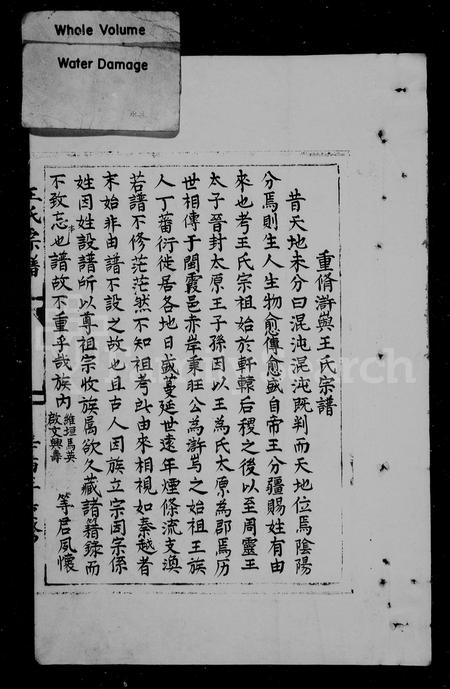 Whole Volume
Water Damage
重脩滸嶴王氏宗譜
昔天地未分曰混沌混沌既判而天地位焉陰陽
分焉則生人生物愈傳愈盛自帝王分疆賜姓有由
來也考王氏宗祖始於軒轅后稷之後以至周靈王
太子晉封太原王子孫因以王為氏太原為郡焉历
世相傳于閩霞邑赤岸秉旺公為滸嶴之始祖王族
人丁蕃衍徙居各地日盛蔓延世遠年煙條流支淇
若譜不修茫茫然不知祖考此由來相視如秦越者
末始非由譜不設之故也且古人因族立宗因宗係
姓因姓設譜所以尊祖宗收族属欲久藏諸籍錄而
不致忘本也譜故不重乎哉族內維垣馬英啟文興壽等君夙懷
王氏宗譜
FamilySearch